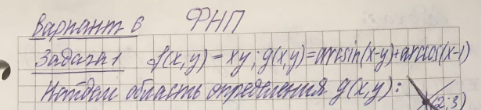 Вариант 6 ФНП
Задача 1 f(x,y) = xy; g(x,y)=arcsin(x-y)+arccos(x-1)
Найдем область определения g(x,y):